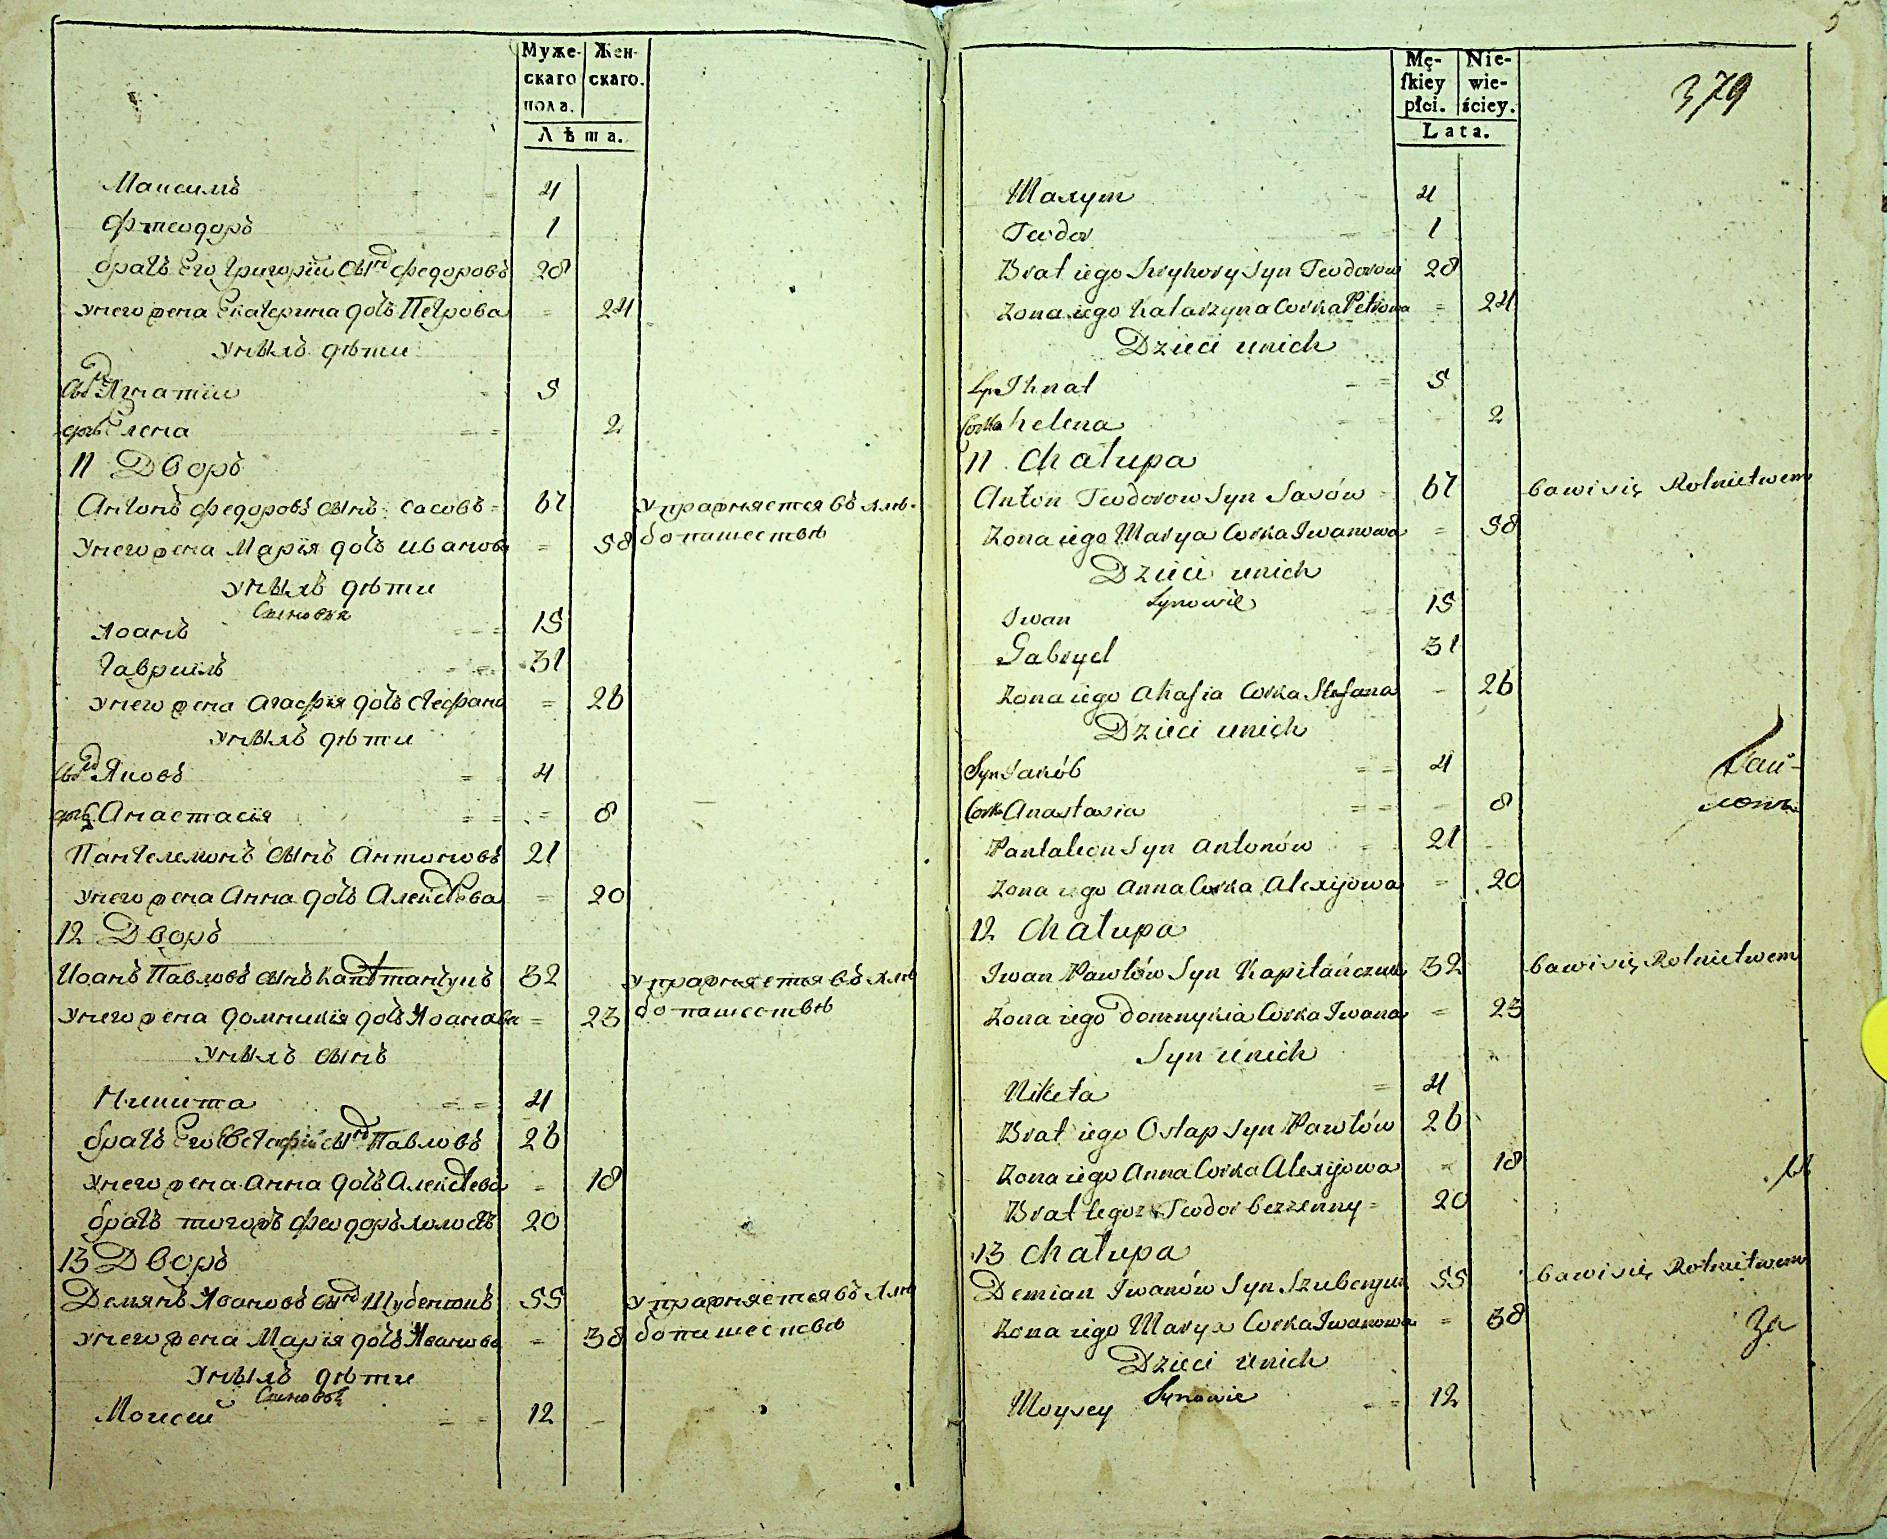 Муже-
скаго
пола.
Жен-
скаго.
Лѣта.
Максимъ = 4
Фтеодоръ = 1
братъ Его Григорïй сынъ Федоровъ 28
Унего жена Екатерина дочь Петрова = 24
Унихъ дѣти
сынъ Игнатïи = 5
дочь Елена = = 2
11 Дворъ
Антонъ Федоровъ сынъ Сасовъ = 67 Упражняется въ хлѣ-
Унего жена Марïя дочь Иванова = 58 бопашествѣ
Унихъ дѣти
Сыновья
Иоанъ = = = 15
Гаврïилъ = = 31
Унего жена Агафïя дочь Стефана = 26
Унихъ дѣти
сынъ Яковъ = = 4
дочь Анастасïя = = = 8
Пантелемонъ сынъ Антоновъ 21
Унего жена Анна дочь Алексѣева = 20
12 Дворъ
Иоанъ Павловъ сынъ Капѣтанчукъ 32 Упражняется въ хлѣ
Унего жена Домникïя дочь Иоанава = 23 бопашествѣ
Унихъ сынъ
Никита = = 4
братъ Его Евстафïй сынъ Павловъ 26
Унего жена Анна дочь Алексѣева = 18
братъ тогожъ Феодоръ холостъ 20
13 Дворъ
Демянъ Ивановъ сынъ Шубенюкъ 55 Упражняется въ хлѣ
Унего жена Марïя дочь Иванова = 38 бопашествѣ
Унихъ дѣти
Сыновья
Моисей = = 12
5
379
Mę-
ſkiey
płci.
Nie-
wie-
ściey.
Lata.
Maxym 4
Teodor 1
Brat iego Hryhory Syn Teodorow 28
Zona iego Katarzyna Corka Petrowa = 24
Dzieci unich
Syn Ihnat = 5
Corka helena 2
11 Chałupa
Anton Teodorow Syn Sasów = 67 bawi się Rolnictwem
Zona iego Marya Corka Iwanowa = 58
Dzieci unich
Synowie
Iwan 15
Gabryel 31
Zona iego Ahafia Corka Stefana = 26
Dzieci unich
Syn Jakób = = 4
Corka Anastasia = = 8
Pantalion Syn Antonów 21
Zona iego Anna Corka Alexijowa = 20
12 Chałupa
Iwan Pawłów Syn Kapitańczuk 32 bawi się Rolnictwem
Zona iego Domnykia Corka Iwana = 23
Syn unich
Nikita = 4
Brat iego Ostap Syn Pawłów 26
Zona iego Anna Corka Alexijowa = 18
Brat tegoż Teodor bezzenny = 20
13 Chałupa
Demian Iwanów Syn Szubeniuk 55 bawi się Rolnictwem
Zona iego Marya Corka Iwanowa = 38
За
Dzieci unich
Synowie
Moysey = = 12